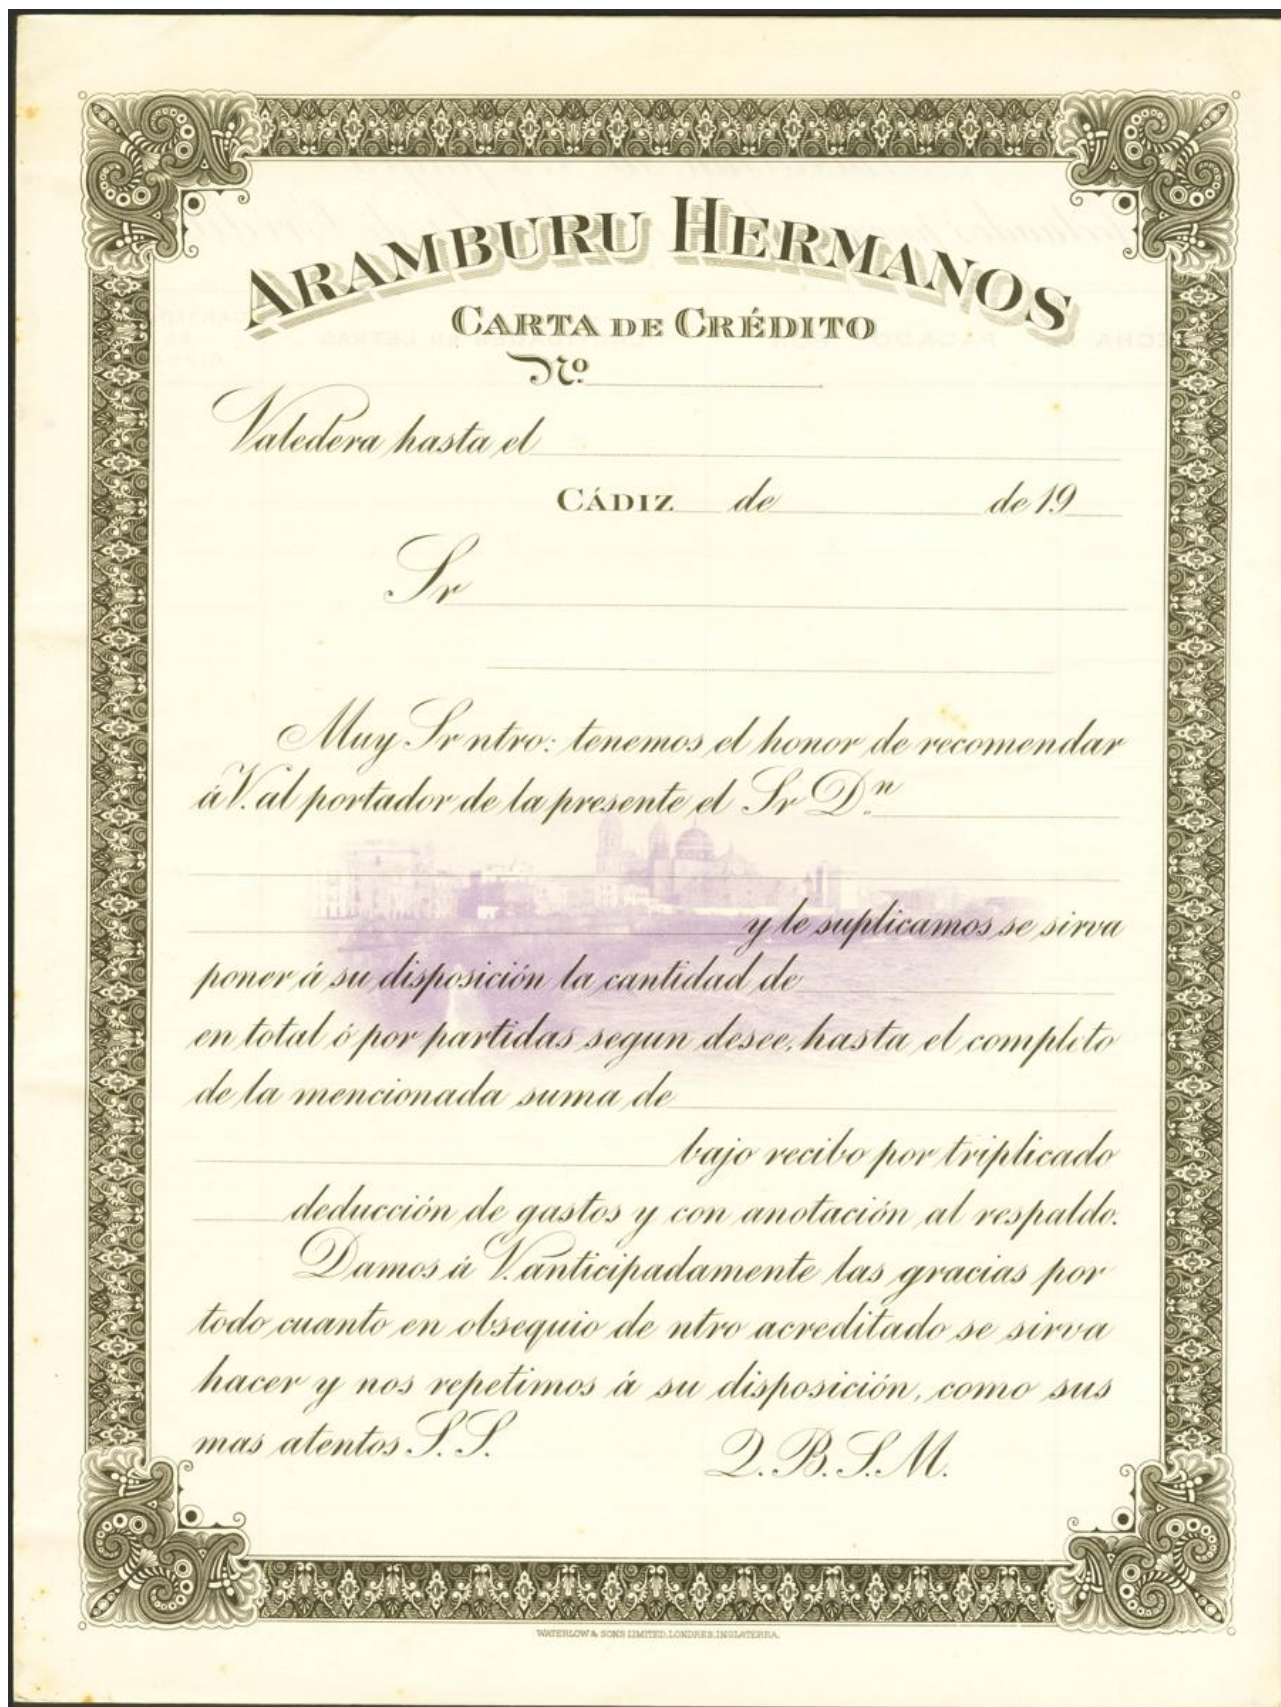 ARAMBURU HERMANOS
CARTA DE CRÉDITO
Nº
Valedera hasta el
CÁDIZ de de 19
Sr
Muy Sr ntro: tenemos el honor de recomendar
á V. al portador de la presente el Sr Dn
y le suplicamos se sirva
poner á su disposición la cantidad de
en total ó por partidas segun desee, hasta el completo
de la mencionada suma de
bajo recibo por triplicado
deducción de gastos y con anotación al respaldo.
Damos á V. anticipadamente las gracias por
todo cuanto en obsequio de ntro acreditado se sirva
hacer y nos repetimos á su disposición, como sus
mas atentos S. S. Q. B. S. M.
WATERLOW & SONS LIMITED, LONDRES, INGLATERRA.